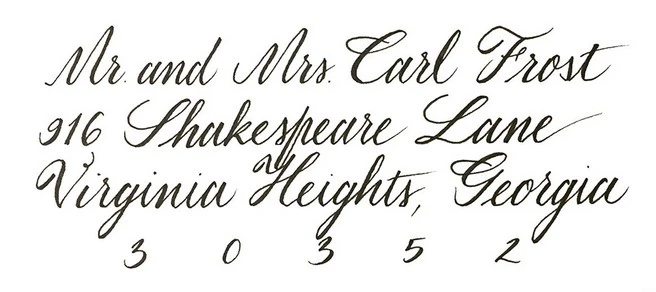 Mr. and Mrs. Carl Frost
916 Shakespeare Lane
Virginia Heights, Georgia
3 0 3 5 2